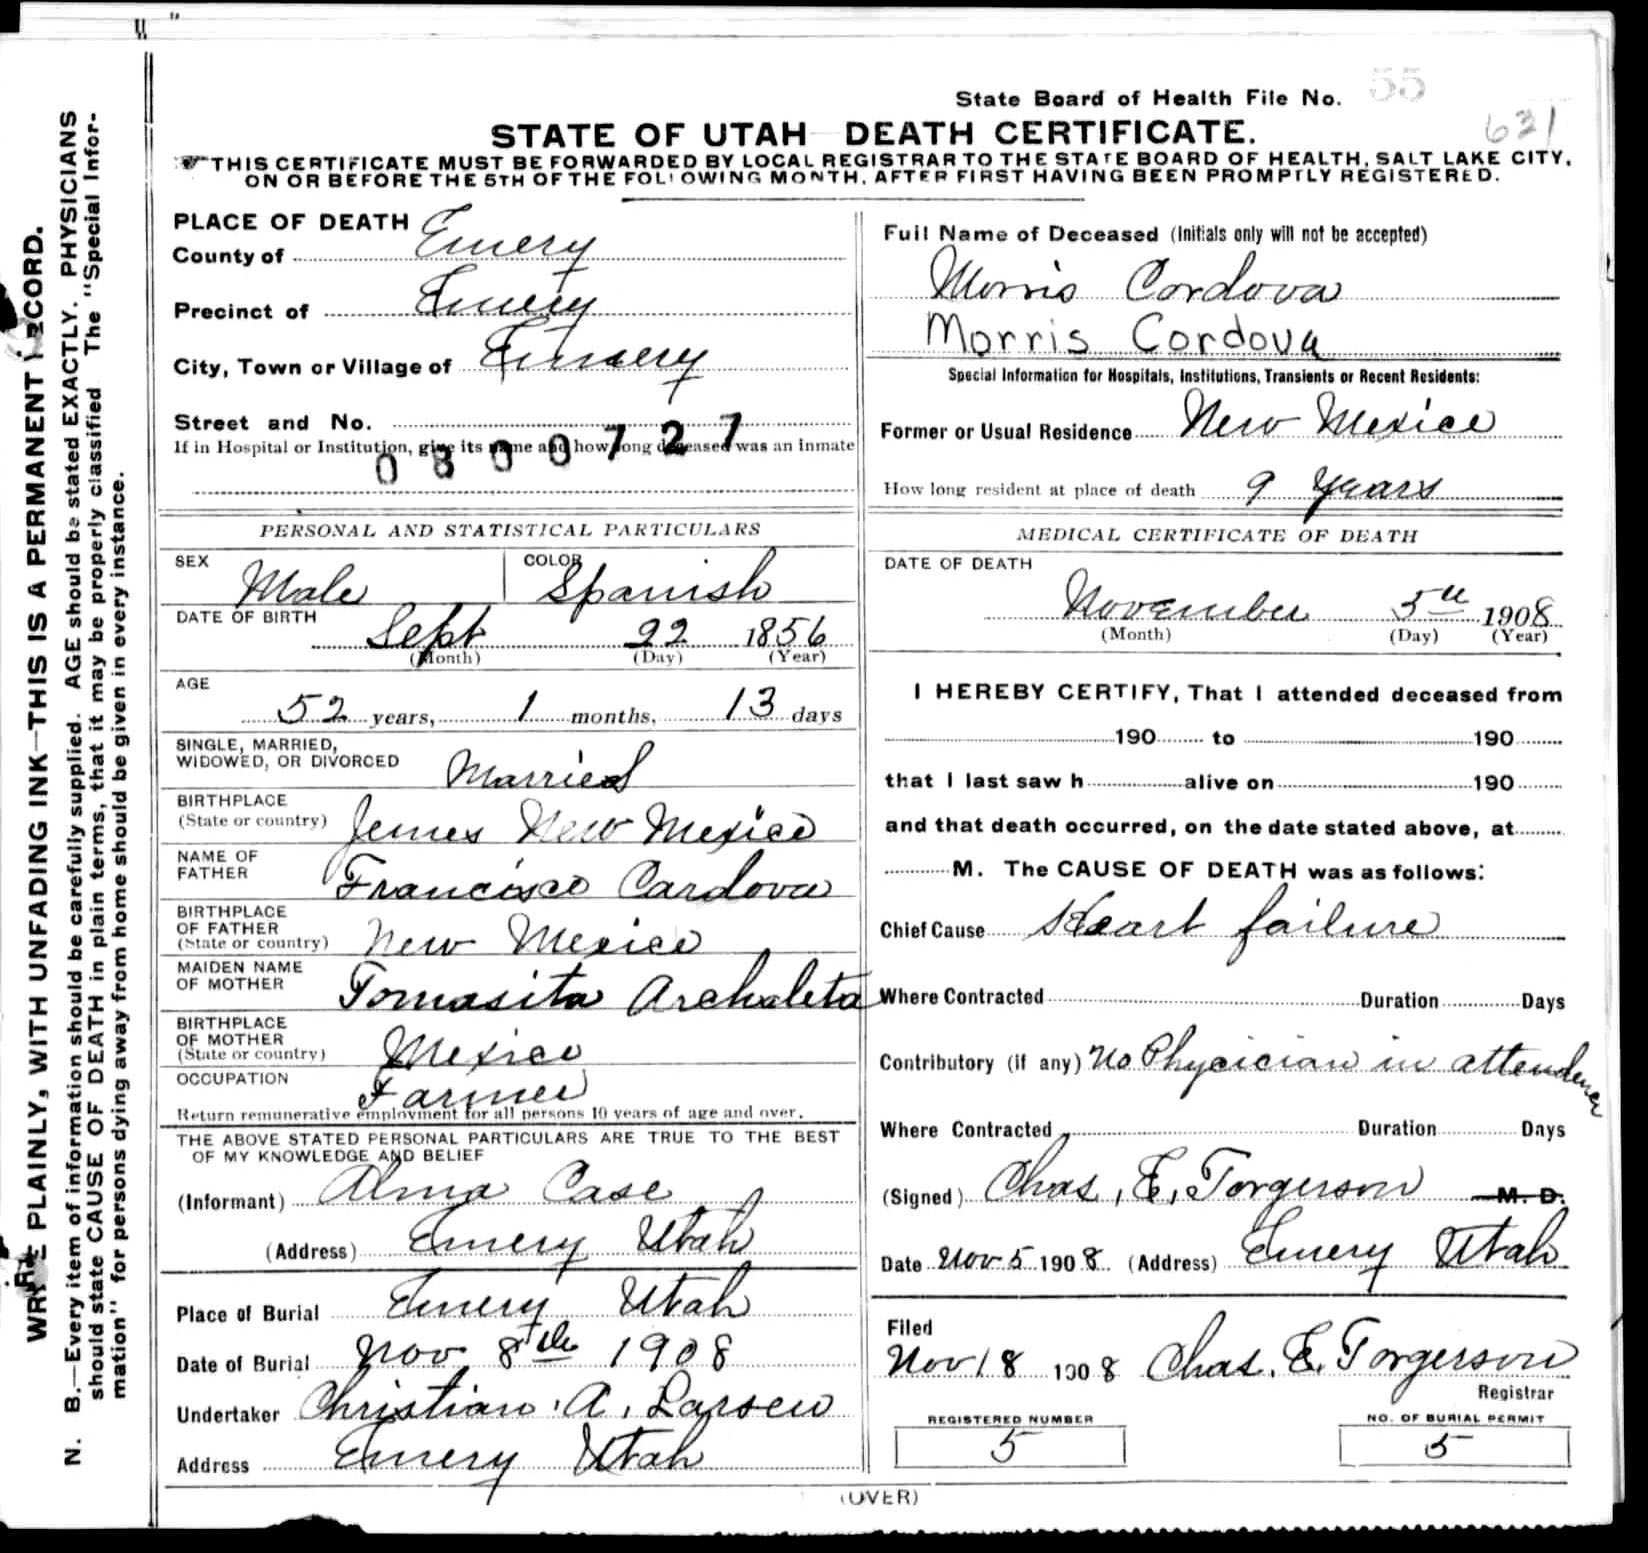 State Board of Health File No. 55
631
STATE OF UTAH DEATH CERTIFICATE.
THIS CERTIFICATE MUST BE FORWARDED BY LOCAL REGISTRAR TO THE STATE BOARD OF HEALTH, SALT LAKE CITY,
ON OR BEFORE THE 5TH OF THE FOLLOWING MONTH, AFTER FIRST HAVING BEEN PROMPTLY REGISTERED.
WRITE PLAINLY, WITH UNFADING INK—THIS IS A PERMANENT RECORD.
N. B.—Every item of information should be carefully supplied. AGE should be stated EXACTLY. PHYSICIANS
should state CAUSE OF DEATH in plain terms, that it may be properly classified The "Special Infor-
mation" for persons dying away from home should be given in every instance.
PLACE OF DEATH
County of Emery
Precinct of Emery
City, Town or Village of Emery
Street and No.
If in Hospital or Institution, give its name and how long deceased was an inmate
0800727
PERSONAL AND STATISTICAL PARTICULARS
SEX Male COLOR Spanish
DATE OF BIRTH
Sept 22 1856
(Month) (Day) (Year)
AGE
52 years, 1 months, 13 days
SINGLE, MARRIED,
WIDOWED, OR DIVORCED Married
BIRTHPLACE
(State or country) Jemes New Mexico
NAME OF
FATHER Francisco Cardova
BIRTHPLACE
OF FATHER
(State or country) New Mexico
MAIDEN NAME
OF MOTHER Tomasita Archuleta
BIRTHPLACE
OF MOTHER
(State or country) Mexico
OCCUPATION Farmer
Return remunerative employment for all persons 10 years of age and over.
THE ABOVE STATED PERSONAL PARTICULARS ARE TRUE TO THE BEST
OF MY KNOWLEDGE AND BELIEF
(Informant) Alma Case
(Address) Emery Utah
Place of Burial Emery Utah
Date of Burial Nov 8th 1908
Undertaker Christian A. Larsen
Address Emery Utah
Full Name of Deceased (Initials only will not be accepted)
Morris Cordova
Morris Cordova
Special Information for Hospitals, Institutions, Transients or Recent Residents:
Former or Usual Residence New Mexico
How long resident at place of death 9 Years
MEDICAL CERTIFICATE OF DEATH
DATE OF DEATH
November 5th 1908
(Month) (Day) (Year)
I HEREBY CERTIFY, That I attended deceased from
190 to 190
that I last saw h alive on 190
and that death occurred, on the date stated above, at
M. The CAUSE OF DEATH was as follows:
Chief Cause Heart failure
Where Contracted Duration Days
Contributory (if any) No Phycician in attendence
Where Contracted Duration Days
(Signed) Chas. E. Torgerson M. D.
Date Nov 5 1908 (Address) Emery Utah
Filed
Nov 18 1908 Chas. E. Torgerson
Registrar
REGISTERED NUMBER
5
NO. OF BURIAL PERMIT
5
(OVER)